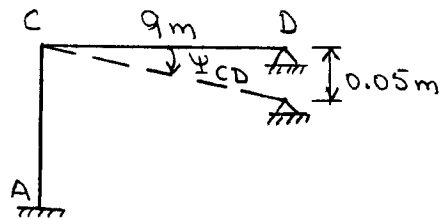 C 9m D
Ψ CD
0.05m
A